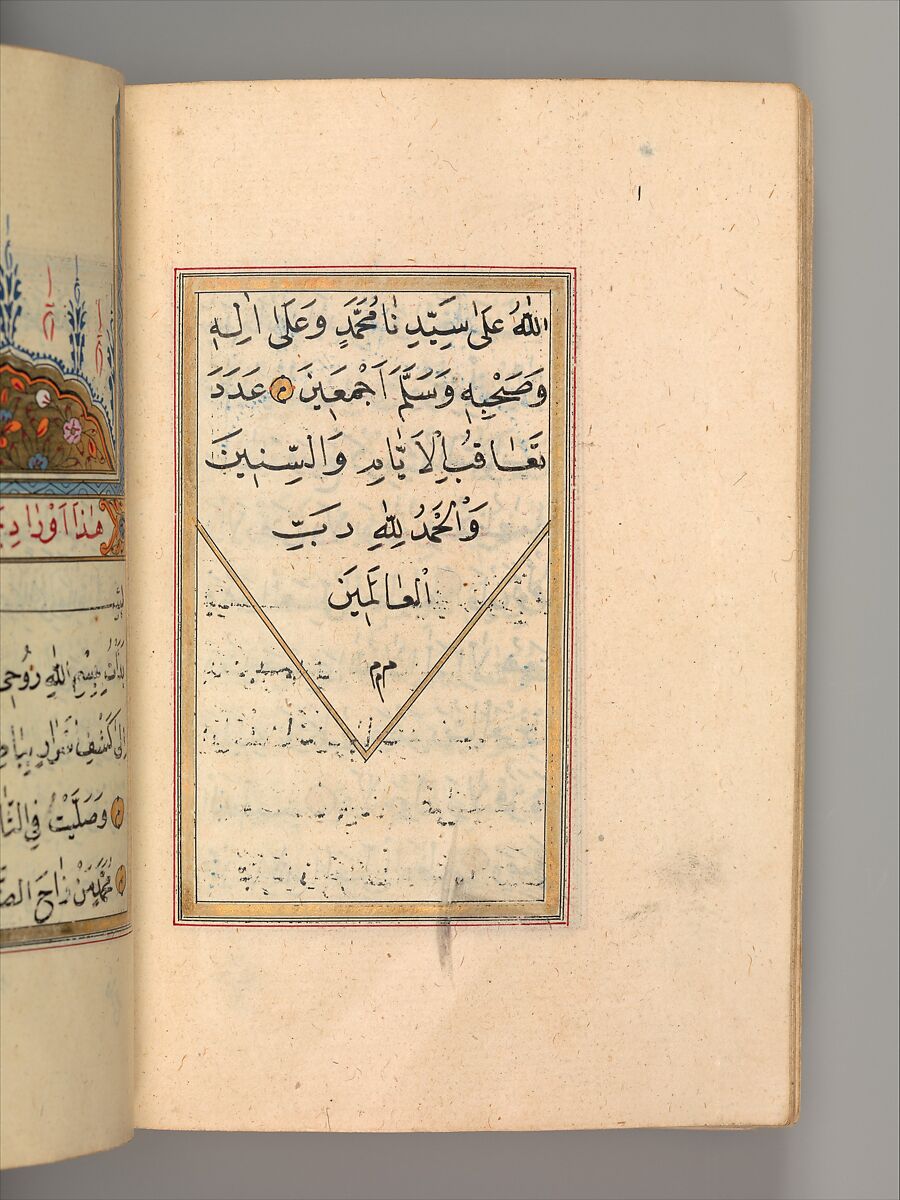 اللّٰهُ عَلٰى سَيِّدِ نَا مُحَمَّدٍ وَعَلٰى اٰلِهٖ
وَصَحْبِهٖ وَسَلَّمَ اَجْمَعِينَ م عَدَدَ
تَعَاقُبِ الْاَيَّامِ وَالسِّنِينَ
وَالْحَمْدُ لِلّٰهِ رَبِّ
الْعَالَمِينَ
م م م
هٰذَا اَوْرَادِ
بِسْمِ اللّٰهِ رُوحِى
اِلٰى كَشْفِ
وَصَلَّيْتُ فِى
مُحَمَّدٍ مَنْ زَاحَ